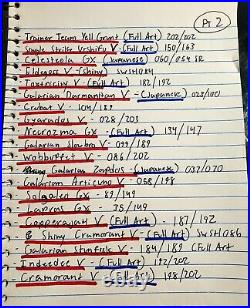 Pt 2
Trainer Team Yell Grunt (Full Art) 202/202
Single Strike Urshifu V - (Full Art) 150/163
Celesteela GX (Japanese) 060/054 SR
Eldegoss V - (Shiny) SWSH084
Toxtricity V - (Full Art) 182/192
Galarian Darmanitan V - (Japanese) 023/100
Crobat V - 104/189
Gyarados V - 028/203
Necrozma GX - (Full Art) 134/147
Galarian Slowbro V - 099/189
Wobbuffet V - 086/202
Galarian Zapdos - (Japanese) 032/070
Galarian Articuno V - 058/198
Solgaleo GX - 89/149
Lapras GX - 35/149
Copperajah V - (Full Art) - 187/192
Shiny Cramorant V - (Full Art) SWSH086
Galarian Stunfisk V - 184/189 (Full Art
Indeedee V - (Full Art) 192/202
Cramorant V - (Full Art) 198/202